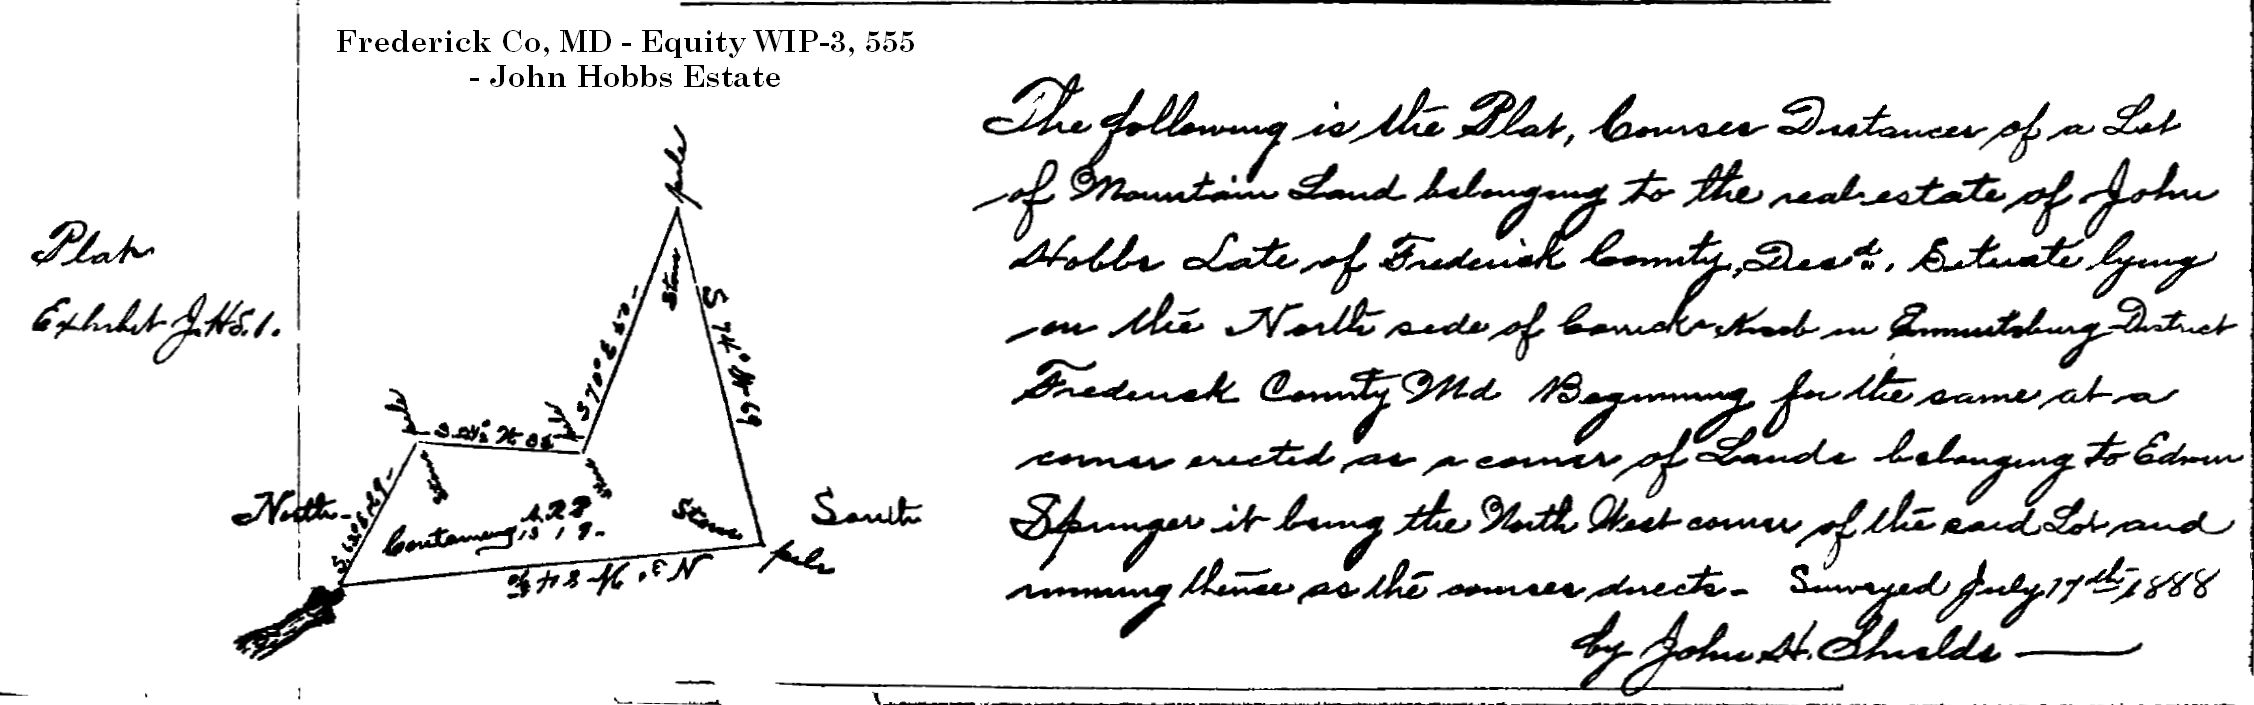 Frederick Co, MD - Equity WIP-3, 555
- John Hobbs Estate
Plat
Exhibit J.H.S.1.
The following is the Plat, Courses Distances of a Lot
of Mountain Land belonging to the real estate of John
Hobbs Late of Frederick County, Decd., Situate lying
on the North side of Carrick Knob in Emmitsburg District
Frederick County Md Beginning for the same at a
corner erected as a corner of Lands belonging to Edwin
Springer it being the North West corner of the said Lot and
running thense as the courses directs - Surveyed July 17th, 1888
by John H. Shields
pile
Stone
S 70° E 52 -
S 74° W 69
pile
Stone
North -
Containing
A. R. P
13 1 9.
Stone
pile
South